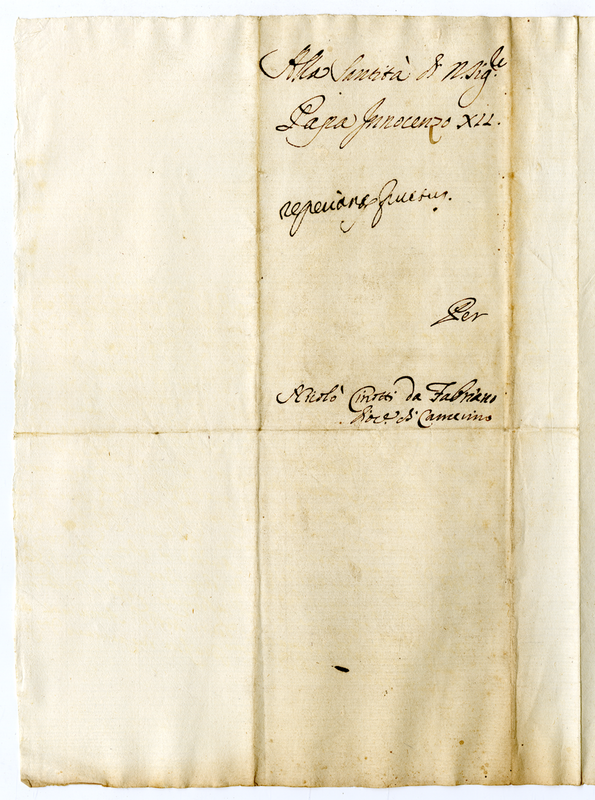 Alla Santità di N Sig.re
Papa Innocenzo XII.
Per
Nicolò Cinotti da Fabriano
Dioc.e di Camerino